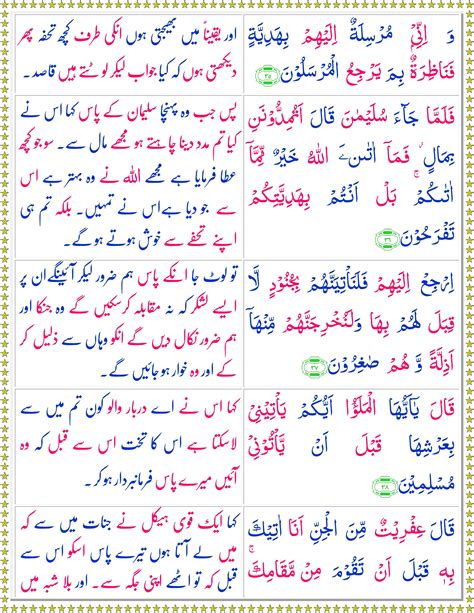 وَ اِنِّیْ مُرْسِلَةٌ اِلَیْهِمْ بِهَدِیَّةٍ
فَنٰظِرَةٌۢ بِمَ یَرْجِعُ الْمُرْسَلُوْنَ ۳۵
اور یقیناً میں بھیجتی ہوں انکی طرف کچھ تحفہ پھر
دیکھتی ہوں کہ کیا جواب لیکر لوٹتے ہیں قاصد۔
فَلَمَّا جَآءَ سُلَیْمٰنَ قَالَ اَتُمِدُّوْنَنِ
بِمَالٍ ؗ فَمَاۤ اٰتٰىنِۦَ اللّٰهُ خَیْرٌ مِّمَّاۤ
اٰتٰىكُمْ ۚ بَلْ اَنْتُمْ بِهَدِیَّتِكُمْ
تَفْرَحُوْنَ ۳۶
پس جب وہ پہنچا سلیمان کے پاس کہا اس نے
کیا تم مدد دینا چاہتے ہو مجھے مال سے۔ سو جو کچھ
عطا فرمایا ہے مجھے اللہ نے وہ بہتر ہے اس
سے جو دیا ہے اس نے تمہیں۔ بلکہ تم ہی
اپنے تحفے سے خوش ہوتے ہوگے۔
اِرْجِعْ اِلَیْهِمْ فَلَنَاْتِیَنَّهُمْ بِجُنُوْدٍ لَّا
قِبَلَ لَهُمْ بِهَا وَلَنُخْرِجَنَّهُمْ مِّنْهَاۤ
اَذِلَّةً وَّ هُمْ صٰغِرُوْنَ ۳۷
تو لوٹ جا انکے پاس ہم ضرور لیکر آئینگے ان پر
ایسے لشکر کہ نہ مقابلہ کرسکیں گے وہ جنکا اور
ہم ضرور نکال دیں گے انکو وہاں سے ذلیل کر
کے اور وہ خوار ہو جائیں گے۔
قَالَ یٰۤاَیُّهَا الْمَلَؤُا اَیُّكُمْ یَاْتِیْنِیْ
بِعَرْشِهَا قَبْلَ اَنْ یَّاْتُوْنِیْ
مُسْلِمِیْنَ ۳۸
کہا اس نے اے دربار والو کون تم میں سے
لاسکتا ہے اس کا تخت اس سے قبل کہ وہ
آئیں میرے پاس فرمانبردار ہو کر۔
قَالَ عِفْرِیْتٌ مِّنَ الْجِنِّ اَنَا اٰتِیْكَ
بِهٖ قَبْلَ اَنْ تَقُوْمَ مِنْ مَّقَامِكَ ۚ
کہا ایک قوی ہیکل نے جنات میں سے کہ
میں لے آتا ہوں تیرے پاس اسکو اس سے
قبل کہ تو اٹھے اپنی جگہ سے۔ اور بلا شبہ میں